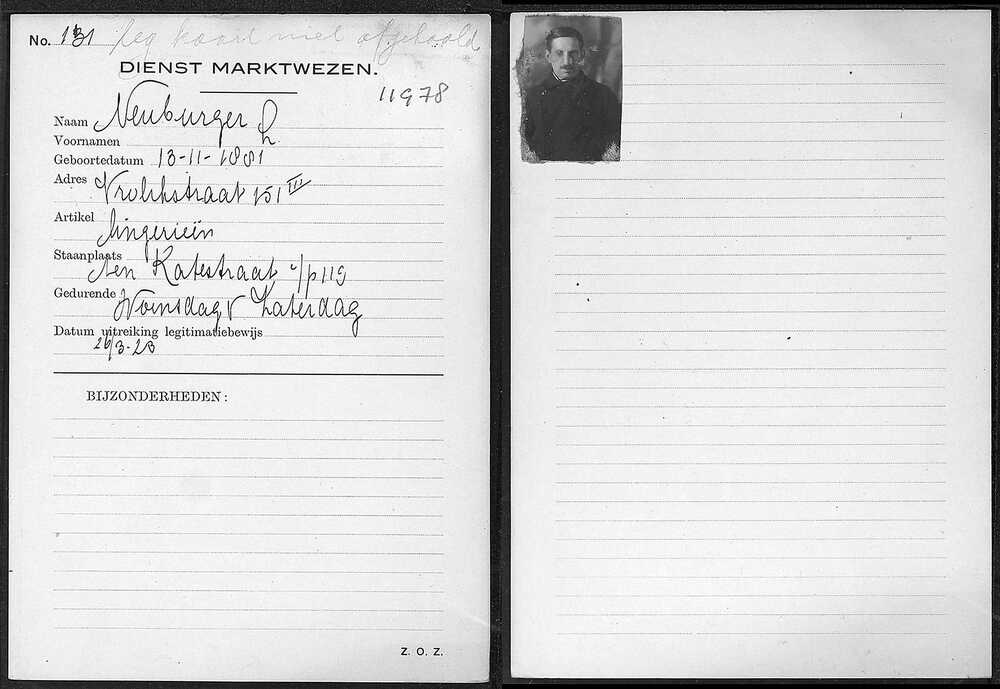 No. 131 leg kaart niet afgehaald
DIENST MARKTWEZEN.
11978
Naam Neuburger L
Voornamen
Geboortedatum 13-11-1881
Adres Vrolikstraat 151 III
Artikel lingerieën
Staanplaats ten Katestraat v/p 119
Gedurende Woensdag v Zaterdag
Datum uitreiking legitimatiebewijs
26/3-23
BIJZONDERHEDEN:
Z. O. Z.